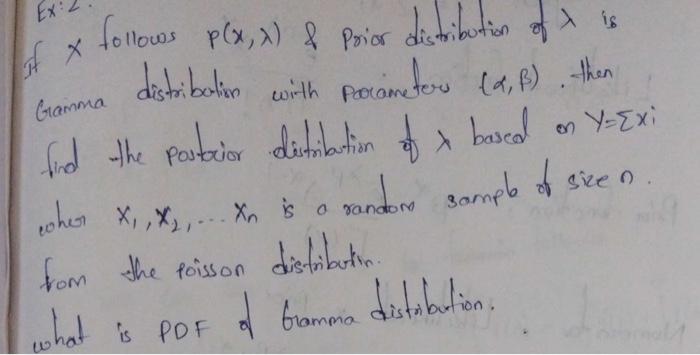 Ex: 2.
If x follows P(x, λ) & Prior distribution of λ is
Gamma distribution with parameters (α, β). then
find the posterior distribution of λ based on Y=Σxi
when X1, X2, ... Xn is a random sample of size n.
from the poisson distribution.
what is PDF of Gamma distribution.